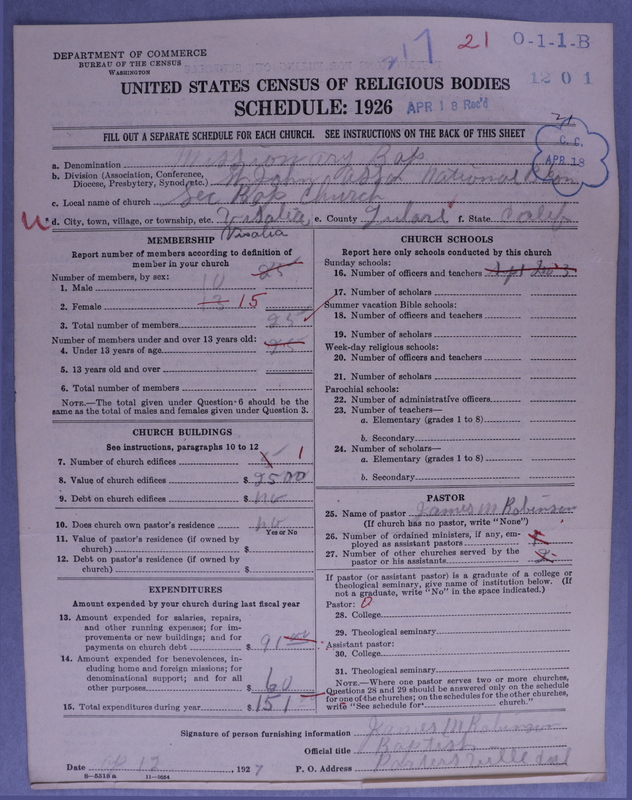 21 O-1-1-B
1201
DEPARTMENT OF COMMERCE
BUREAU OF THE CENSUS
WASHINGTON
UNITED STATES CENSUS OF RELIGIOUS BODIES
SCHEDULE: 1926 APR 18 Rec'd
FILL OUT A SEPARATE SCHEDULE FOR EACH CHURCH. SEE INSTRUCTIONS ON THE BACK OF THIS SHEET
C. C. APR 18
a. Denomination Missionary Bap
b. Division (Association, Conference, Diocese, Presbytery, Synod, etc.) St John Assn National
c. Local name of church Sec Bap Church
d. City, town, village, or township, etc. Visalia, e. County Tulare f. State Calif
Visalia
MEMBERSHIP
Report number of members according to definition of member in your church
Number of members, by sex: 25
1. Male 10
2. Female 13 15
3. Total number of members 25
Number of members under and over 13 years old:
4. Under 13 years of age
5. 13 years old and over
6. Total number of members
NOTE.—The total given under Question 6 should be the same as the total of males and females given under Question 3.
CHURCH BUILDINGS
See instructions, paragraphs 10 to 12
7. Number of church edifices 1
8. Value of church edifices $ 2500
9. Debt on church edifices $ no
10. Does church own pastor's residence no
Yes or No
11. Value of pastor's residence (if owned by church) $
12. Debt on pastor's residence (if owned by church) $
EXPENDITURES
Amount expended by your church during last fiscal year
13. Amount expended for salaries, repairs, and other running expenses; for improvements or new buildings; and for payments on church debt $ 91
14. Amount expended for benevolences, including home and foreign missions; for denominational support; and for all other purposes $ 60
15. Total expenditures during year $ 151
CHURCH SCHOOLS
Report here only schools conducted by this church
Sunday schools:
16. Number of officers and teachers 3
17. Number of scholars
Summer vacation Bible schools:
18. Number of officers and teachers
19. Number of scholars
Week-day religious schools:
20. Number of officers and teachers
21. Number of scholars
Parochial schools:
22. Number of administrative officers
23. Number of teachers—
a. Elementary (grades 1 to 8)
b. Secondary
24. Number of scholars—
a. Elementary (grades 1 to 8)
b. Secondary
PASTOR
25. Name of pastor James M Robinson
(If church has no pastor, write "None")
26. Number of ordained ministers, if any, employed as assistant pastors
27. Number of other churches served by the pastor or his assistants 2
If pastor (or assistant pastor) is a graduate of a college or theological seminary, give name of institution below. (If not a graduate, write "No" in the space indicated.)
Pastor: 0
28. College
29. Theological seminary
Assistant pastor:
30. College
31. Theological seminary
NOTE.—Where one pastor serves two or more churches, Questions 28 and 29 should be answered only on the schedule for one of the churches; on the schedules for the other churches, write "See schedule for church."
Signature of person furnishing information James M Robinson
Official title Baptist
Date Ap 12, 1927 P. O. Address Portersville Cal
8—5518 a 11—9654